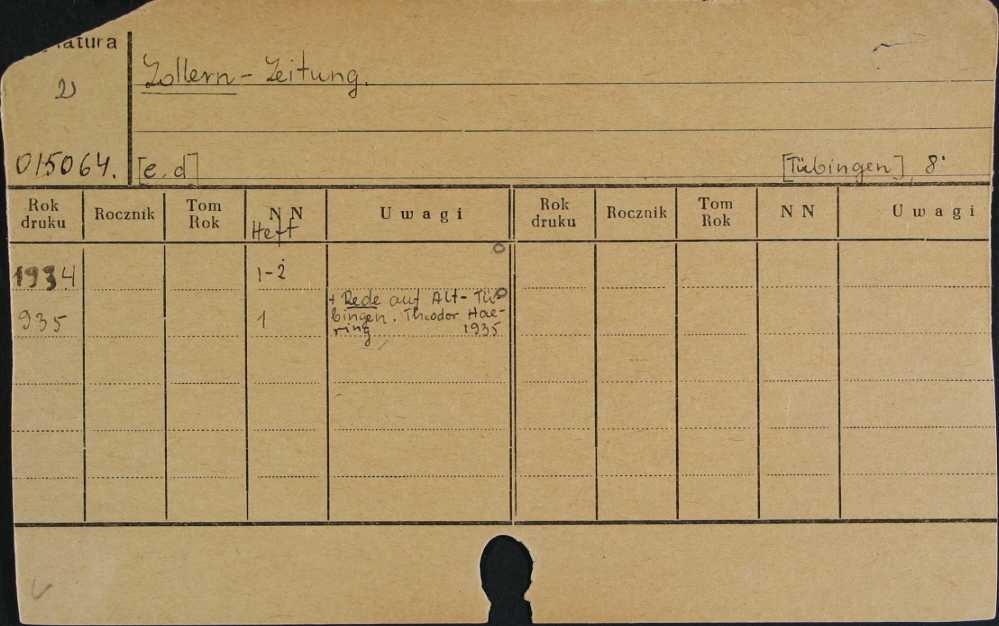 natura
Zollern-Zeitung.
015064. [e. d] [Tübingen], 8°
Rok druku Rocznik Tom Rok NN Uwagi Rok druku Rocznik Tom Rok NN Uwagi
Heft
1934 1-2
935 1 + Rede auf Alt-Tü-
bingen. Theodor Hae-
ring 1935